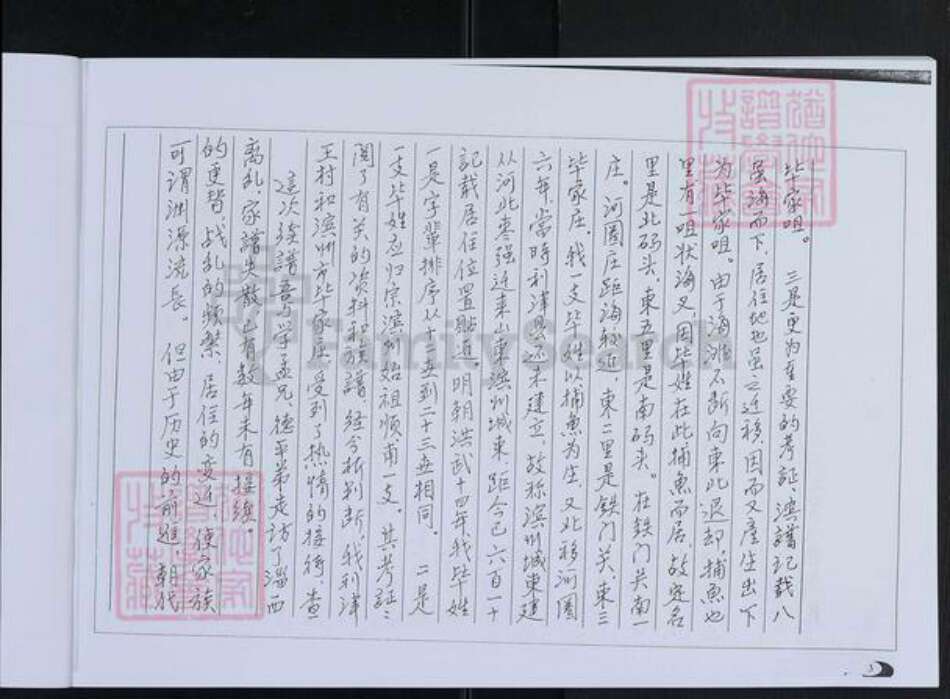 可谓渊源流长。 但由于历史的前进，朝代
的更替，战乱的频繁，居住的变迁，使家族
离乱，家譜失散已有数年未有接续。
这次续譜吾与学孟兄、德平弟走访了淄西
王村和滨州市毕家庄受到了热情的接待，查
阅了有关的资料和族譜，经分析判断，我利津
一支毕姓应归宗滨州始祖顺甫一支。其考証：
一是字辈排序从十二世到二十三世相同。 二是
记载居住位置贴近。明朝洪武十四年我毕姓
从河北枣强迁来山東滨州城東，距今已六百一十
六年，當時利津县还未建立，故称滨州城東建
毕家庄。我一支毕姓以捕魚为生，又北移河圈
庄。河圈庄距海较近，東二里是铁门关東三
里是北码头，東五里是南码头。在铁门关南一
里有一咀状海叉，因毕姓在此捕魚而居，故定名
为毕家咀。由于海滩不断向東北退却，捕魚也
虽海而下，居住地也虽之迁移，因而又産生出下
毕家咀。 三是更为重要的考証，滨譜记载八
3
FamilySearch